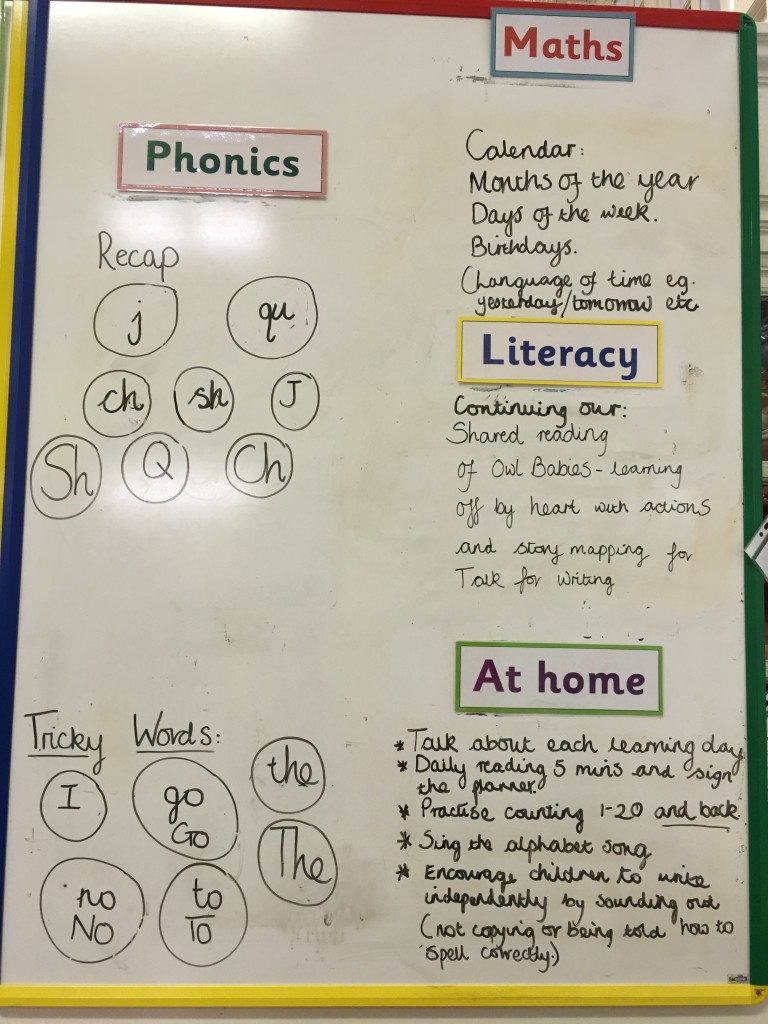 Maths
Calendar:
Months of the year
Days of the week.
Birthdays.
(Language of time eg.
yesterday/tomorrow etc
Phonics
Recap
j qu
ch sh J
Sh Q Ch
Literacy
Continuing our:
Shared reading
of Owl Babies - learning
off by heart with actions
and story mapping for
Talk for Writing
Tricky Words:
I go the
Go The
no to
NO To
At home
* Talk about each learning day
* Daily reading 5 mins and sign
the planner.
* Practise counting 1-20 and back.
* Sing the alphabet song
* Encourage children to write
independently by sounding out
(not copying or being told how to
spell correctly.)